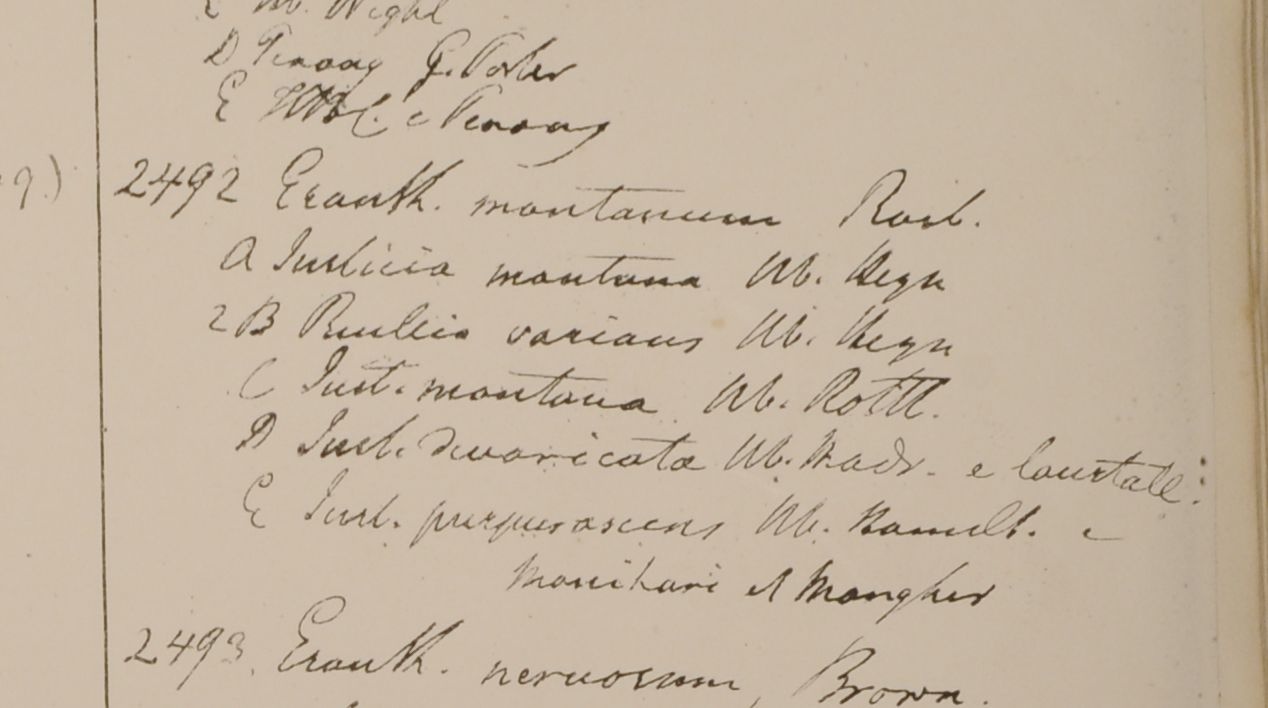 C Hb. Wight
D Penang G. Porter
E HBC. e Penang
9.)
2492 Eranth. montanum Roxb.
A Justicia montana Hb. Heyn
2 B Ruellia varians Hb. Heyn
C Just. montana Hb. Rottl.
D Just. divaricata Hb. Madr. e Courtall.
E Just. purpurascens Hb. Hamilt. e
Monihari et Mongher
2493. Eranth. nervosum, Brown.